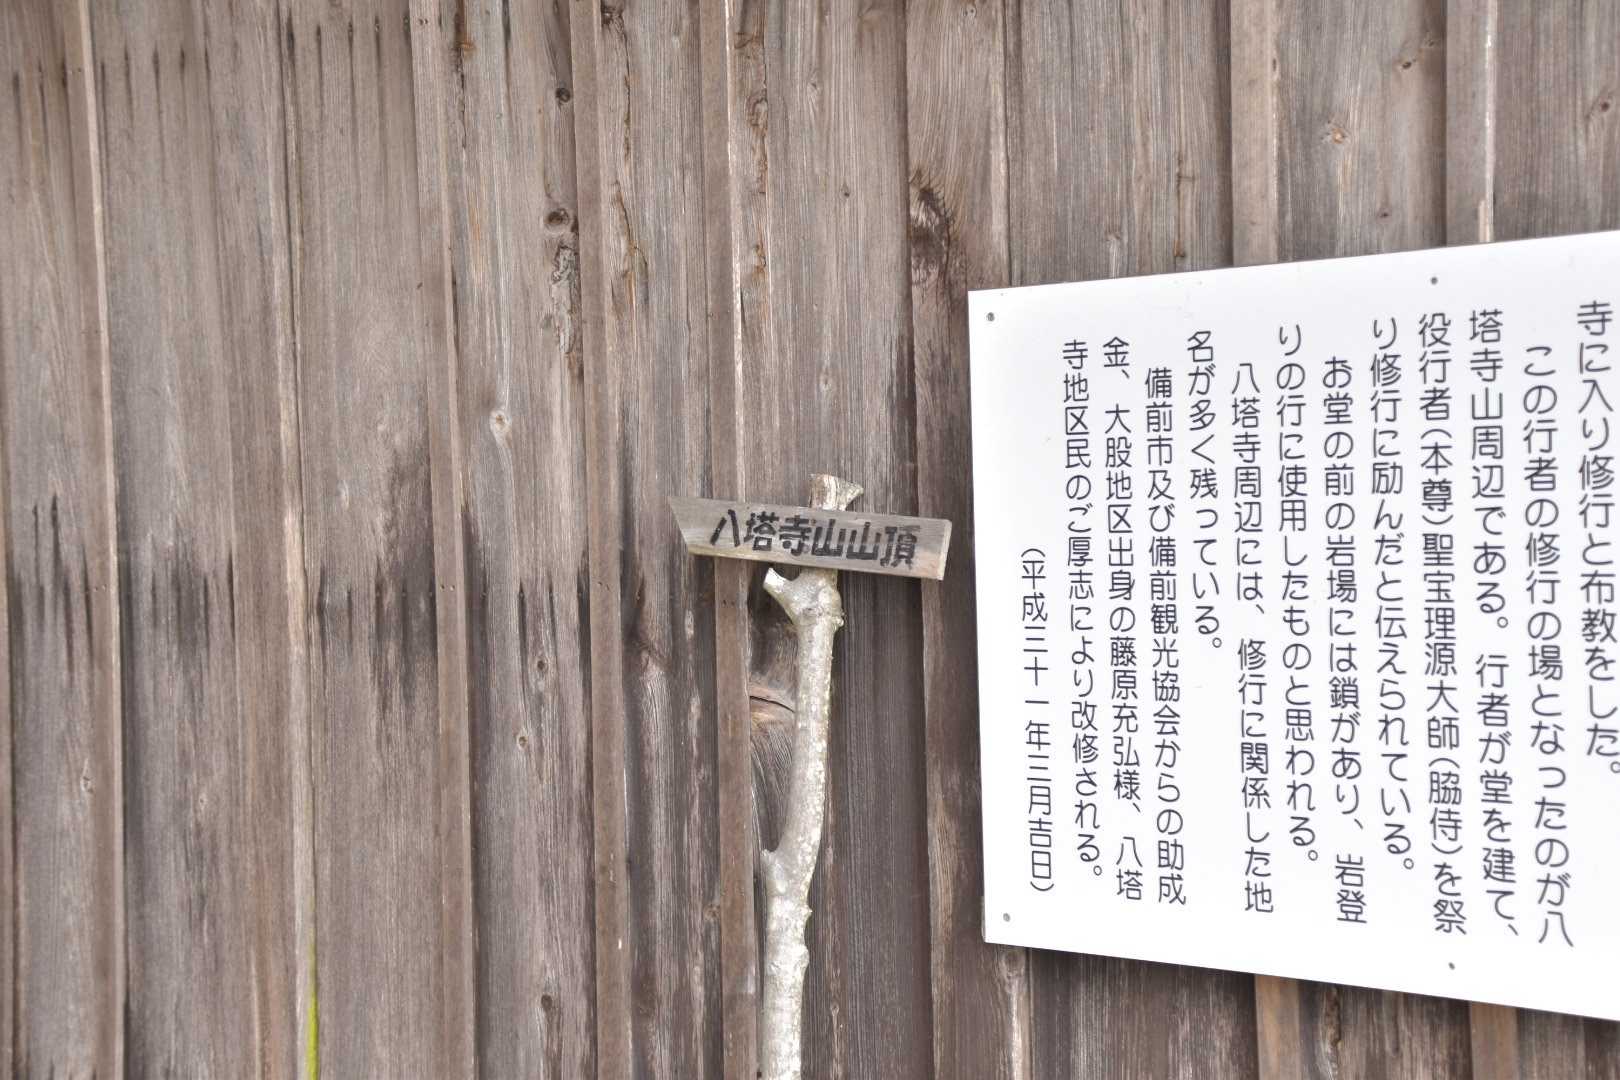 八塔寺山山頂
寺に入り修行と布教をした。
この行者の修行の場となったのが八
塔寺山周辺である。行者が堂を建て、
役行者（本尊）聖宝理源大師（脇侍）を祭
り修行に励んだと伝えられている。
お堂の前の岩場には鎖があり、岩登
りの行に使用したものと思われる。
八塔寺周辺には、修行に関係した地
名が多く残っている。
備前市及び備前観光協会からの助成
金、大股地区出身の藤原充弘様、八塔
寺地区民のご厚志により改修される。
（平成三十一年三月吉日）